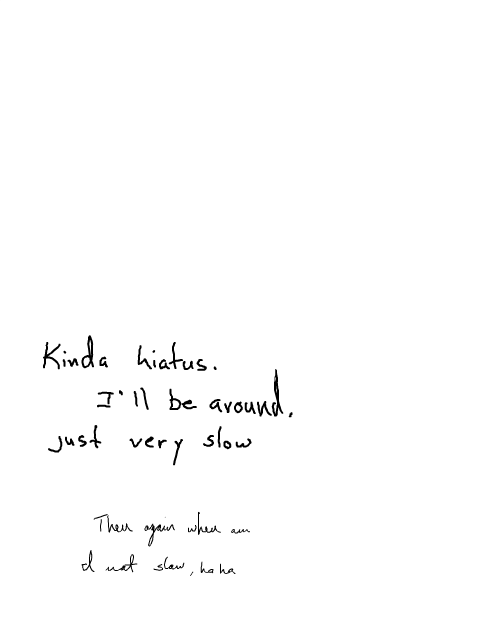 Kinda hiatus.
I'll be around,
just very slow
Then again when am
I not slow, ha ha